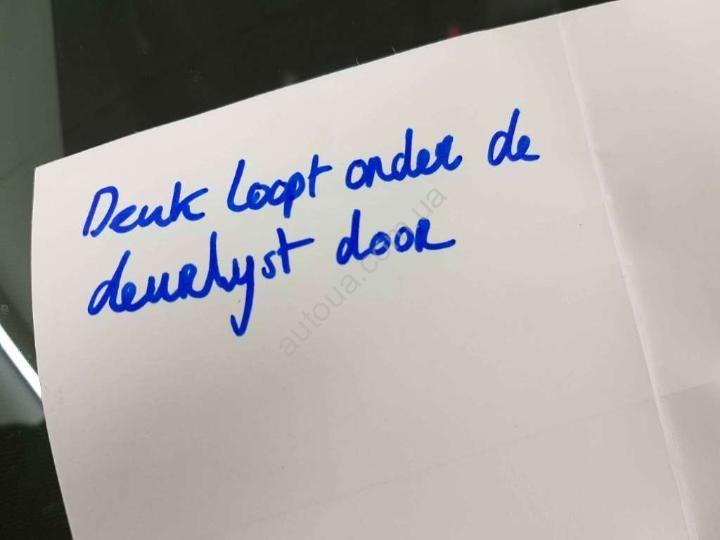 Deuk loopt onder de
deurlyst door
autoua.com.ua